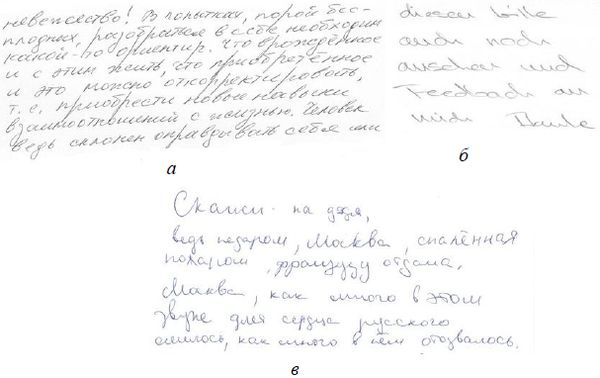 невежество! В попытках, порой бес-
плодных, разобраться в себе необходим
какой-то ориентир. Что врождённое
и с этим жить, что приобретённое
и это можно откорректировать,
т.е. приобрести новые навыки
взаимоотношений с жизнью. Человек
ведь склонен оправдывать себя или
а
diesen bitte
auch noch
anschauen und
Feedback an
mich Danke
б
Скажи-ка дядя,
ведь недаром, Москва, спалённая
пожаром, французу отдана.
Москва, как много в этом
звуке для сердца русского
слилось, как много в нём отозвалось.
в